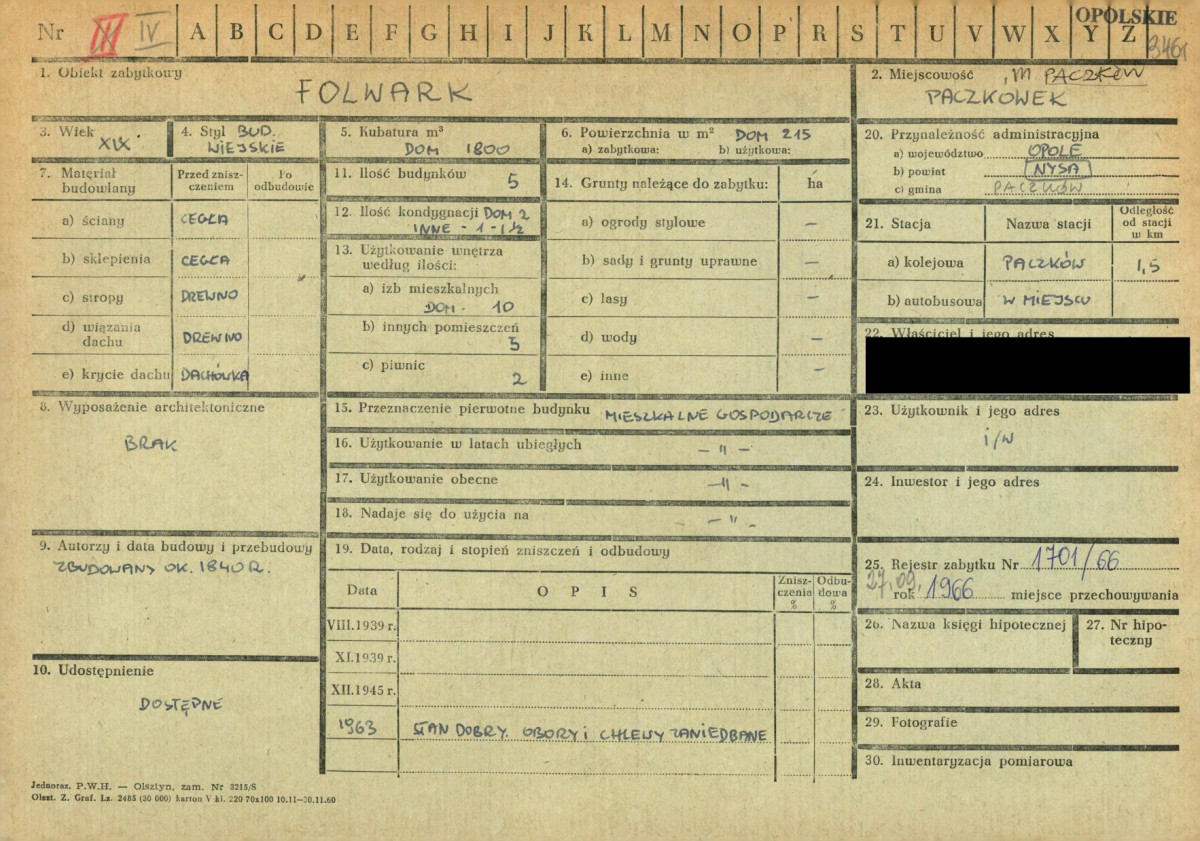 Nr III IV A B C D E F G H I J K L M N O P R S T U V W X Y Z OPOLSKIE
3461
1. Obiekt zabytkowy
FOLWARK
2. Miejscowość M. PACZKÓW
PACZKOWEK
3. Wiek
XIX
4. Styl BUD.
WIEJSKIE
5. Kubatura m³
DOM 1800
6. Powierzchnia w m² DOM 215
a) zabytkowa: b) użytkowa:
7. Materiał budowlany
Przed zniszczeniem
Po odbudowie
a) ściany CEGŁA
b) sklepienia CEGŁA
c) stropy DREWNO
d) wiązania dachu DREWNO
e) krycie dachu DACHÓWKA
8. Wyposażenie architektoniczne
BRAK
9. Autorzy i data budowy i przebudowy
ZBUDOWANY OK. 1840 R.
10. Udostępnienie
DOSTĘPNE
11. Ilość budynków 5
12. Ilość kondygnacji DOM 2
INNE - 1 - 1½
13. Użytkowanie wnętrza
według ilości:
a) izb mieszkalnych
DOM - 10
b) innych pomieszczeń
5
c) piwnic
2
14. Grunty należące do zabytku: ha
a) ogrody stylowe –
b) sady i grunty uprawne –
c) lasy –
d) wody –
e) inne –
15. Przeznaczenie pierwotne budynku MIESZKALNE GOSPODARCZE
16. Użytkowanie w latach ubiegłych – " –
17. Użytkowanie obecne – " –
18. Nadaje się do użycia na – " –
19. Data, rodzaj i stopień zniszczeń i odbudowy
Data OPIS Zniszczenia % Odbudowa %
VIII.1939 r.
XI.1939 r.
XII.1945 r.
1963 STAN DOBRY. OBORY i CHLEWY ZANIEDBANE
20. Przynależność administracyjna
a) województwo OPOLE
b) powiat NYSA
c) gmina PACZKÓW
21. Stacja Nazwa stacji Odległość od stacji w km
a) kolejowa PACZKÓW 1,5
b) autobusowa W MIEJSCU
22. Właściciel i jego adres
23. Użytkownik i jego adres
i/w
24. Inwestor i jego adres
25. Rejestr zabytku Nr 1701/66
27.09.
rok 1966 miejsce przechowywania
26. Nazwa księgi hipotecznej
27. Nr hipoteczny
28. Akta
29. Fotografie
30. Inwentaryzacja pomiarowa
Jednoraz. P.W.H. — Olsztyn, zam. Nr 3215/S
Olszt. Z. Graf. Lz. 2485 (30 000) karton V kl. 220 70x100 10.11—30.11.60